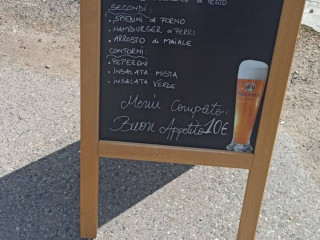 di PESTO
SECONDI:
• SPIEDINI al FORNO
• HAMBURGER ai FERRI
• ARROSTO di MAIALE
CONTORNI:
• PEPERONI
• INSALATA MISTA
• INSALATA VERDE
Menu Completo
Buon Appetito 10€